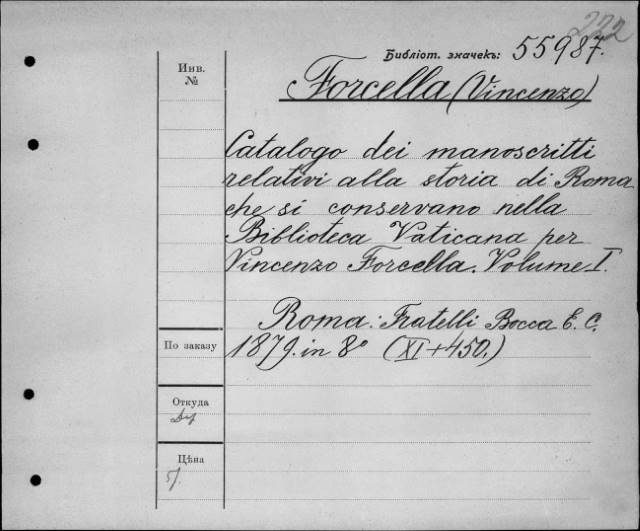 222
Библіот. значекъ: 55987.
Инв.
№
Forcella (Vincenzo)
Catalogo dei manoscritti
relativi alla storia di Roma
che si conservano nella
Biblioteca Vaticana per
Vincenzo Forcella. Volume I.
Roma: Fratelli Bocca E. C.
По заказу
1879. in 8° (XI+450.)
Откуда
Цѣна
5/.